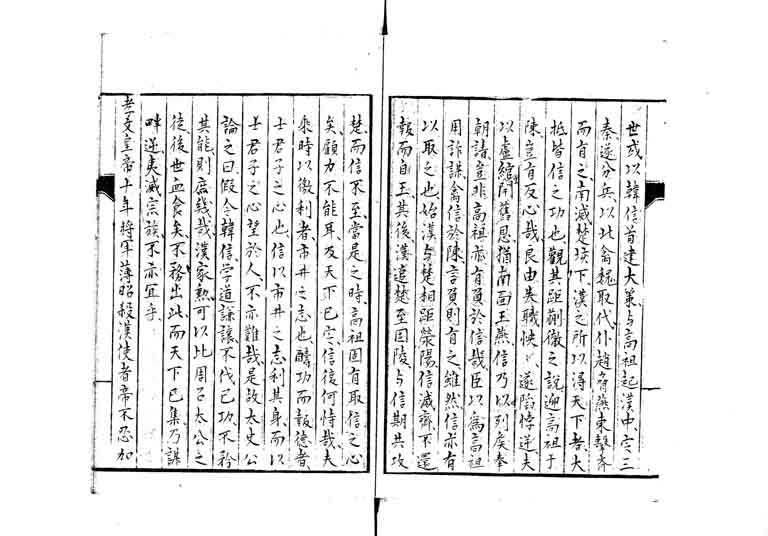 世或以韓信首建大策与高祖起漢中定三
秦遂分兵以北禽魏取代仆趙脅燕東擊齊
而有之南滅楚垓下漢之所以得天下者大
抵皆信之功也觀其距蒯徹之說迎高祖于
陳豈有反心哉良由失職怏〻遂陷悖逆夫
以盧綰閈舊恩猶南面王燕信乃以列侯奉
朝請豈非高祖亦有負於信哉臣以為高祖
用詐謀禽信於陳言負則有之雖然信亦有
以取之也始漢与楚相距滎陽信滅齊不還
報而自王其後漢追楚至固陵与信期共攻
楚而信不至當是之時高祖固有取信之心
矣顧力不能耳及天下已定信復何恃哉夫
乘時以徼利者市井之志也醻功而報德者
士君子之心也信以市井之志利其身而以
士君子之心望於人不亦難哉是故太史公
論之曰假令韓信学道謙讓不伐己功不矜
其能則庶幾哉漢家勲可以比周召太公之
徒後世血食矣不務出此而天下已集乃謀
畔逆夷滅宗族不亦宜乎
孝文皇帝十年將軍薄昭殺漢使者帝不忍加